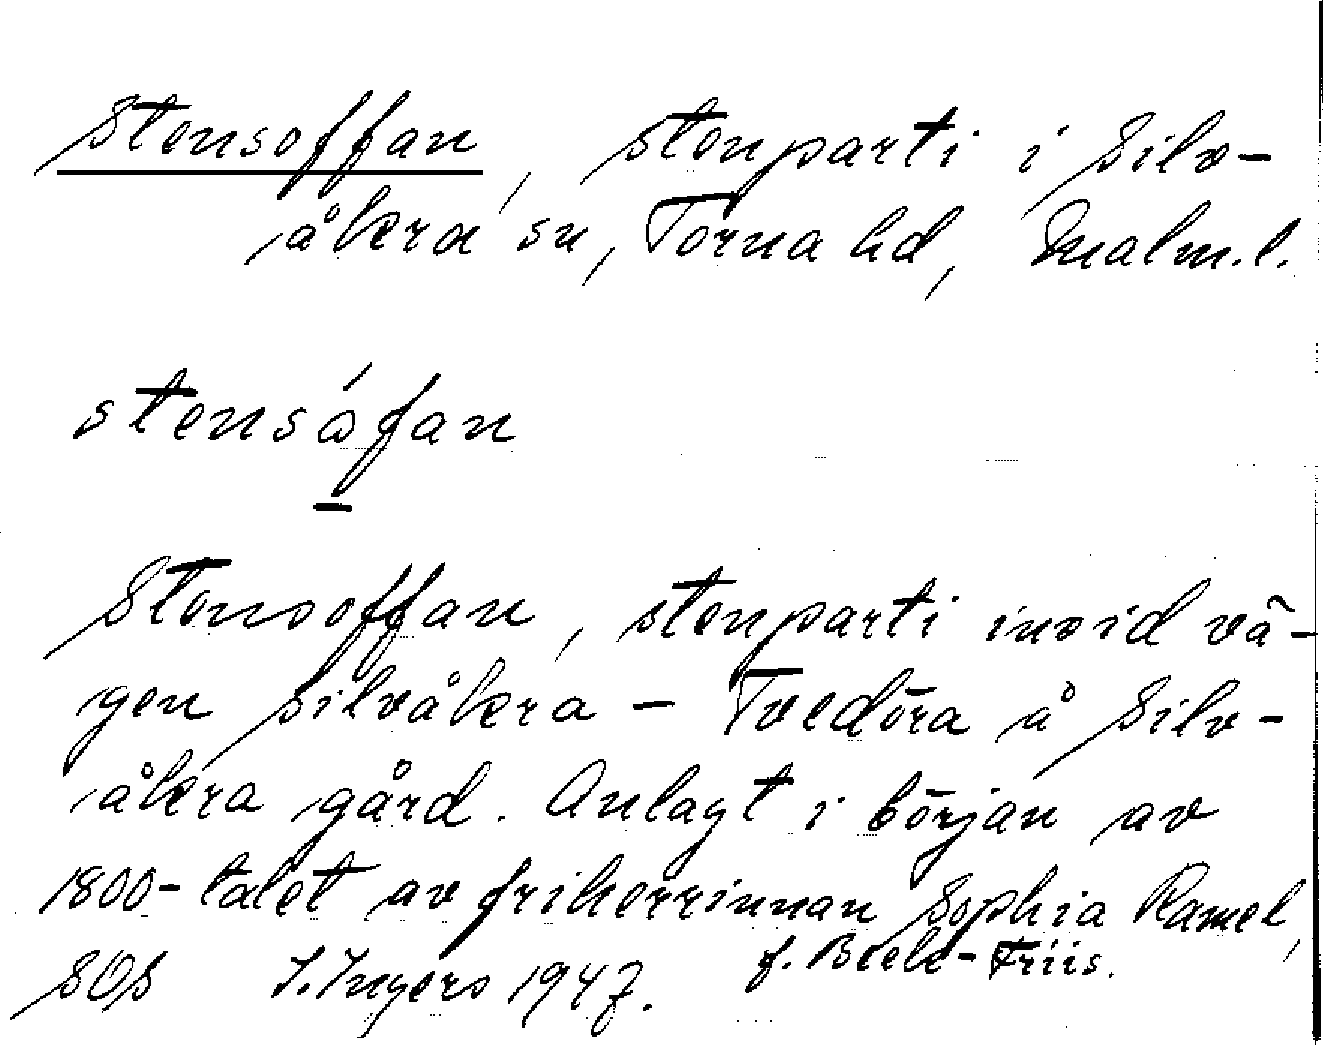 Stensoffan, stenparti i Silv-
åkra sn, Torna hd, Malm.l.
stensåfan
Stensoffan, stenparti invid vä-
gen Silvåkra - Tvedöra å Silv-
åkra gård. Anlagt i början av
1800-talet av friherrinnan Sophia Ramel,
f. Beck-Friis.
SOS I. Ingers 1947.